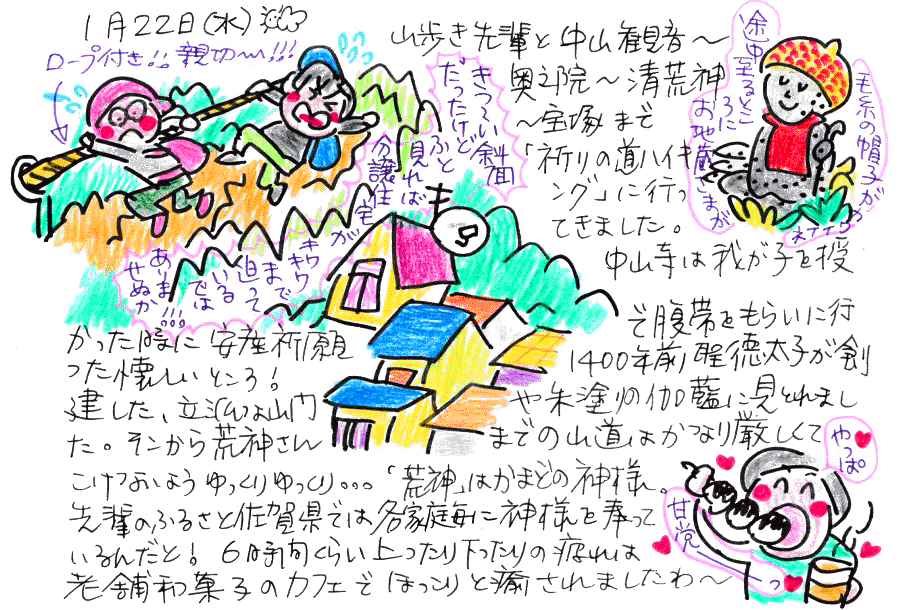 1月22日(水)
ロープ付き!!親切〜!!!
山歩き先輩と中山観音〜
奥之院〜清荒神
〜宝塚まで
「祈りの道ハイキ
ング」に行っ
てきました。
中山寺は我が子を授
かった時に安産祈願
で腹帯をもらいに行
った懐しいところ!
1400年前聖徳太子が創
建した、立派な山門
や朱塗りの伽藍に見とれまし
た。そこから荒神さん
までの山道はかなり厳しくて
こけないようゆっくりゆっくり...「荒神」はかまどの神様。
先輩のふるさと佐賀県では各家庭毎に神様を奉って
いるんだと!6時間くらい上ったり下ったりの疲れは
老舗和菓子のカフェでほっこりと癒されましたわ〜
きつーい斜面
だったけど
ふと
見れば
分譲住
宅が
キワキワ
まで
迫って
いる
では
あーりま
せぬか!!!
途中至るとこ
ろに
お地蔵さまが
毛糸の帽子がカ
ワイイ
やっぱ
甘党
っ